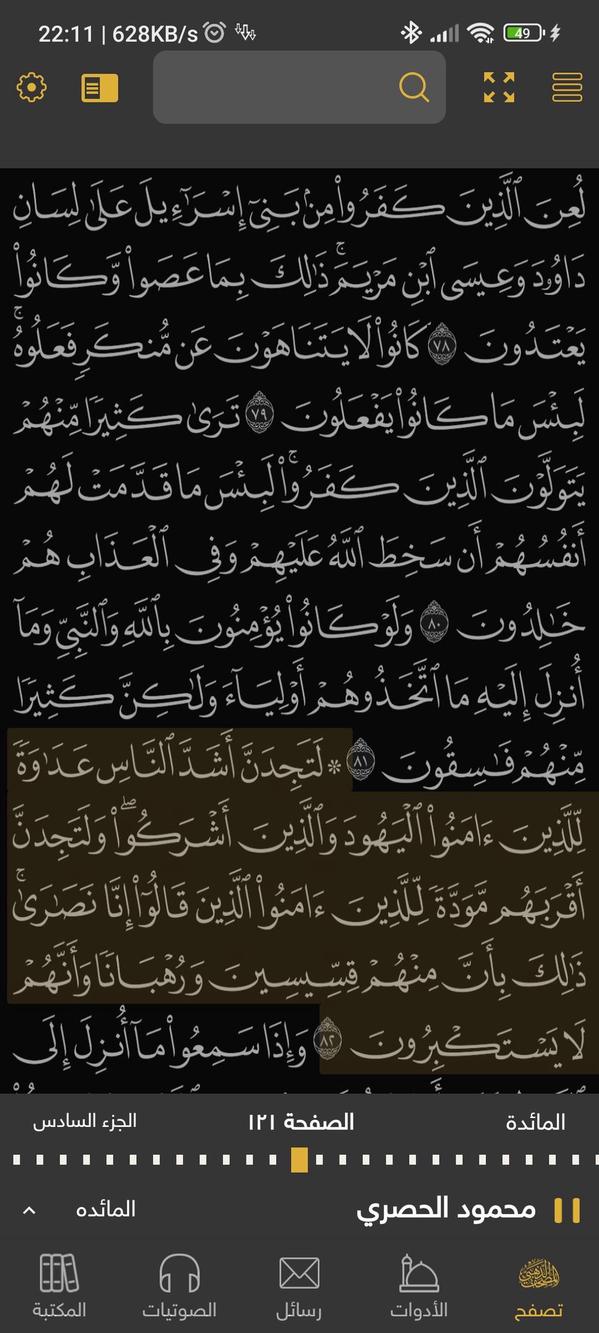 22:11 | 628KB/s
49
لُعِنَ ٱلَّذِينَ كَفَرُوا۟ مِنۢ بَنِىٓ إِسْرَٰٓءِيلَ عَلَىٰ لِسَانِ
دَاوُۥدَ وَعِيسَى ٱبْنِ مَرْيَمَ ۚ ذَٰلِكَ بِمَا عَصَوا۟ وَّكَانُوا۟
يَعْتَدُونَ ٧٨ كَانُوا۟ لَا يَتَنَاهَوْنَ عَن مُّنكَرٍ فَعَلُوهُ ۚ
لَبِئْسَ مَا كَانُوا۟ يَفْعَلُونَ ٧٩ تَرَىٰ كَثِيرًا مِّنْهُمْ
يَتَوَلَّوْنَ ٱلَّذِينَ كَفَرُوا۟ ۚ لَبِئْسَ مَا قَدَّمَتْ لَهُمْ
أَنفُسُهُمْ أَن سَخِطَ ٱللَّهُ عَلَيْهِمْ وَفِى ٱلْعَذَابِ هُمْ
خَٰلِدُونَ ٨٠ وَلَوْ كَانُوا۟ يُؤْمِنُونَ بِٱللَّهِ وَٱلنَّبِىِّ وَمَآ
أُنزِلَ إِلَيْهِ مَا ٱتَّخَذُوهُمْ أَوْلِيَآءَ وَلَٰكِنَّ كَثِيرًا
مِّنْهُمْ فَٰسِقُونَ ٨١ * لَتَجِدَنَّ أَشَدَّ ٱلنَّاسِ عَدَٰوَةً
لِّلَّذِينَ ءَامَنُوا۟ ٱلْيَهُودَ وَٱلَّذِينَ أَشْرَكُوا۟ ۖ وَلَتَجِدَنَّ
أَقْرَبَهُم مَّوَدَّةً لِّلَّذِينَ ءَامَنُوا۟ ٱلَّذِينَ قَالُوٓا۟ إِنَّا نَصَٰرَىٰ ۚ
ذَٰلِكَ بِأَنَّ مِنْهُمْ قِسِّيسِينَ وَرُهْبَانًا وَأَنَّهُمْ
لَا يَسْتَكْبِرُونَ ٨٢ وَإِذَا سَمِعُوا۟ مَآ أُنزِلَ إِلَى
المائدة
الصفحة ١٢١
الجزء السادس
محمود الحصري
المائده
تصفح
الأدوات
رسائل
الصوتيات
المكتبة